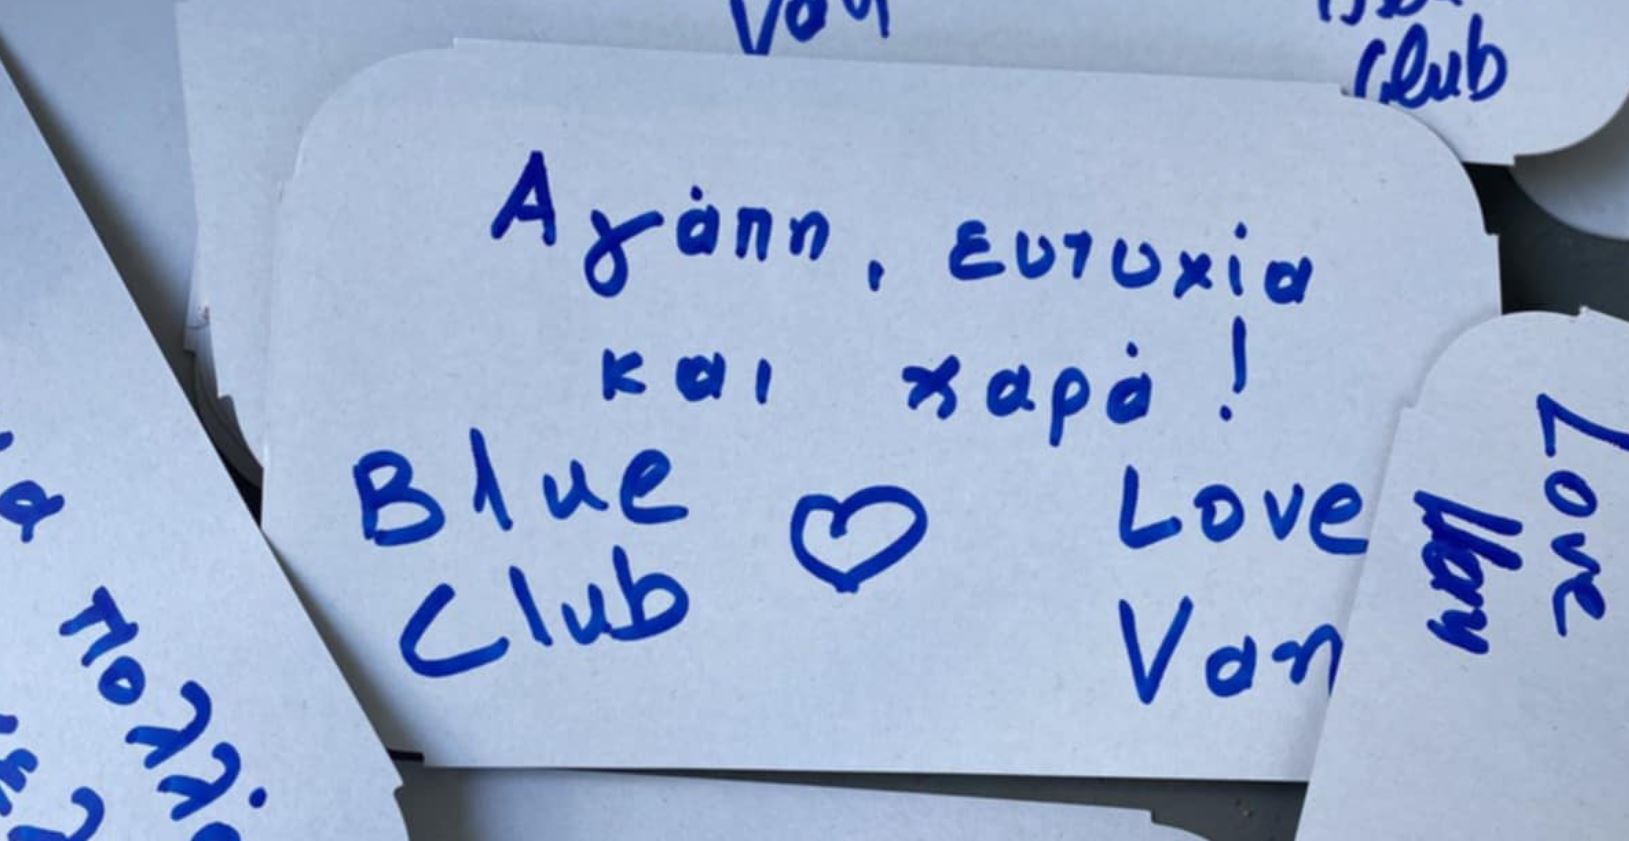 Van
Club
Αγάπη, ευτυχία
και χαρά!
Blue
Club
Love
Van
Love
Van